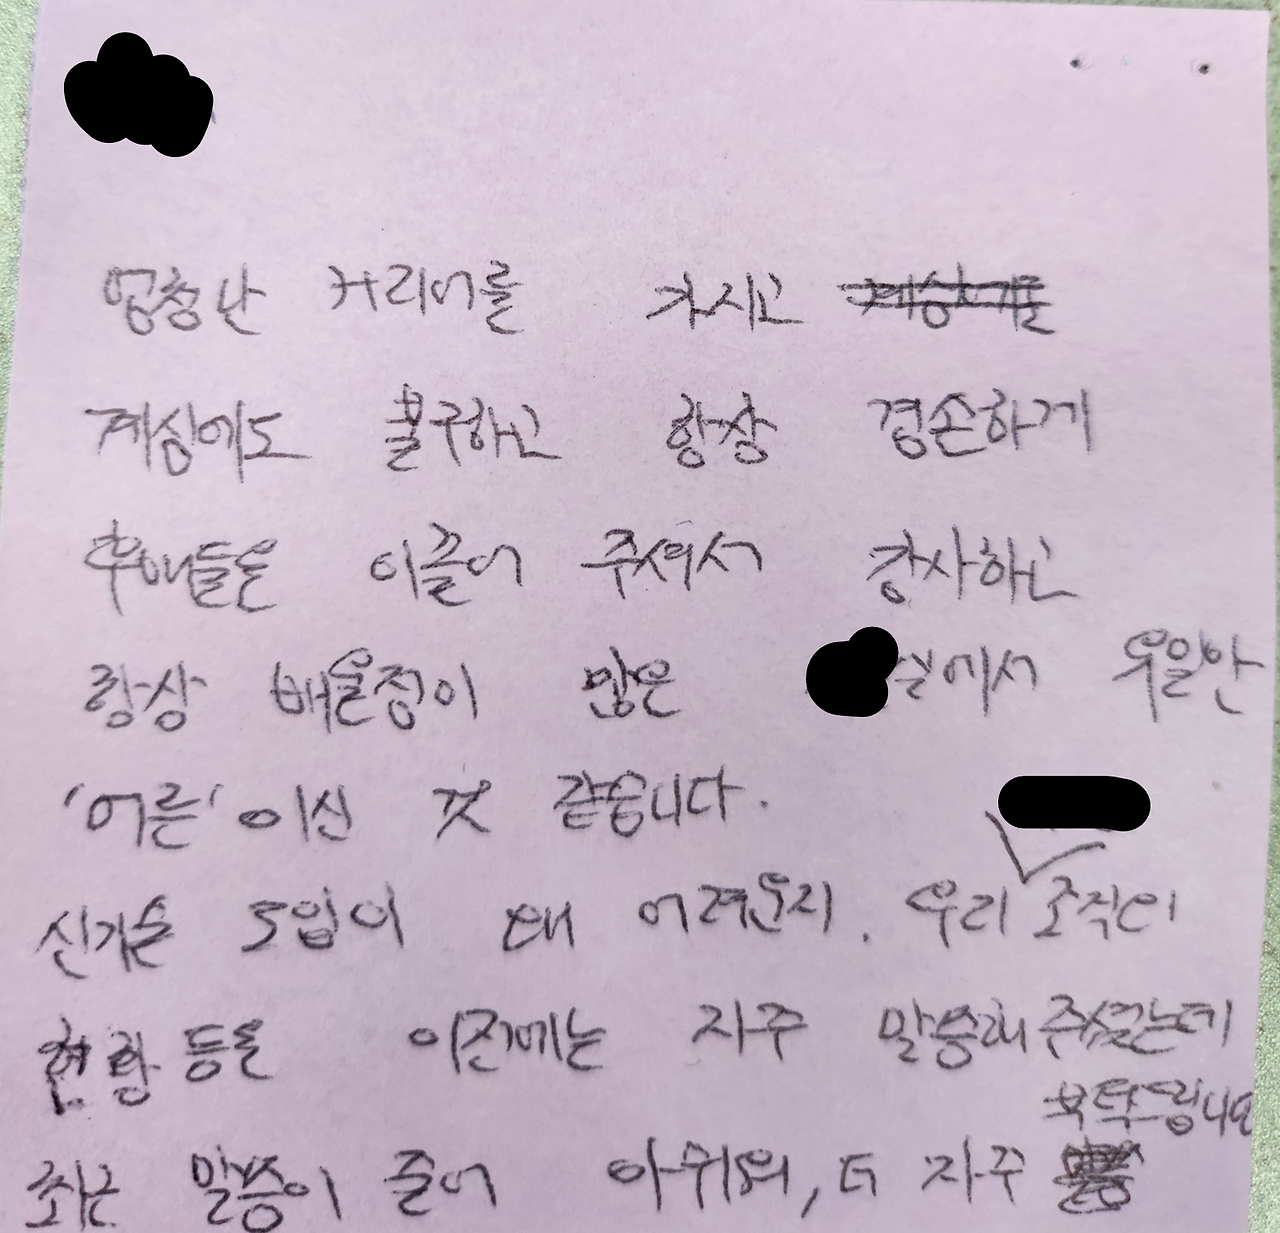 엄청난 커리어를 가지고
계심에도 불구하고 항상 겸손하게
후배들을 이끌어 주셔서 감사하고
항상 배울점이 많은 실에서 유일한
'어른'이신 것 같습니다.
신기술 도입이 왜 어려운지. 우리 조직의
현황 등을 이전에는 자주 말씀해 주셨는데
부탁드립니다
최근 말씀이 줄어 아쉬워, 더 자주